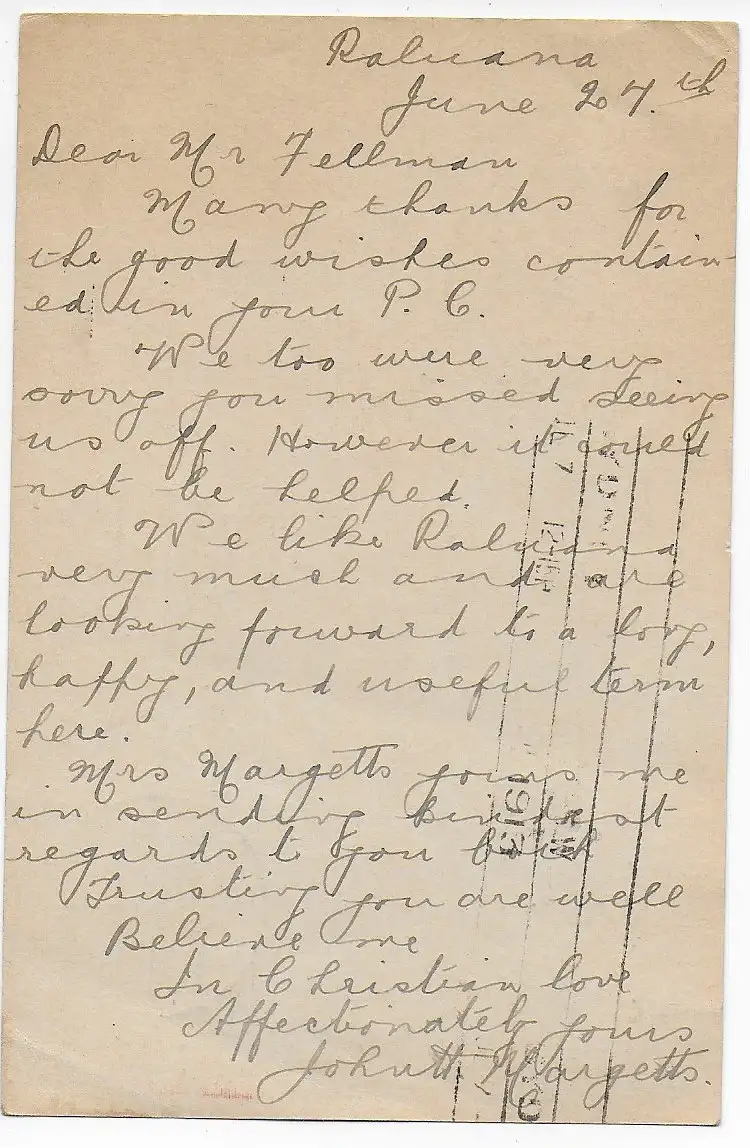 Raluana
June 27th
Dear Mr Fellman
Many thanks for
the good wishes contain-
ed in your P. C.
We too were very
sorry you missed seeing
us off. However it could
not be helped.
We like Raluana
very much and are
looking forward to a long,
happy, and useful term
here.
Mrs Margetts joins me
in sending kindest
regards to you both
Trusting you are well
Believe me
In Christian love
Affectionately yours
John H Margetts.
1913